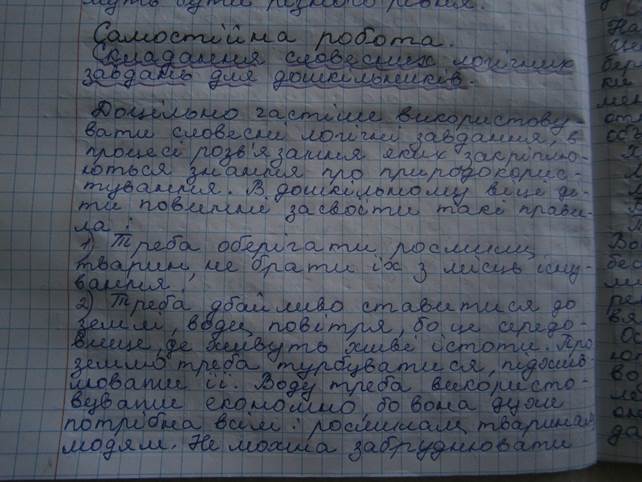 муть бути різного рівня.
Самостійна робота.
Складання словесних логічних
завдань для дошкільників.
Доцільно частіше використову
вати словесні логічні завдання, в
процесі розв'язання яких закріплю-
ються знання про природокорис-
тування. В дошкільному віці ді-
ти повинні засвоїти такі прави-
ла:
1) Треба оберігати рослини,
тварин, не брати їх з місць існу-
вання.
2) Треба дбайливо ставитися до
землі, води, повітря, бо це середо-
вище, де живуть живі істоти. Про
землю треба турбуватися, піджив-
лювати її. Воду треба використо-
вувати економно, бо вона дуже
потрібна всім: рослинам, тваринам,
людям. Не можна забруднювати